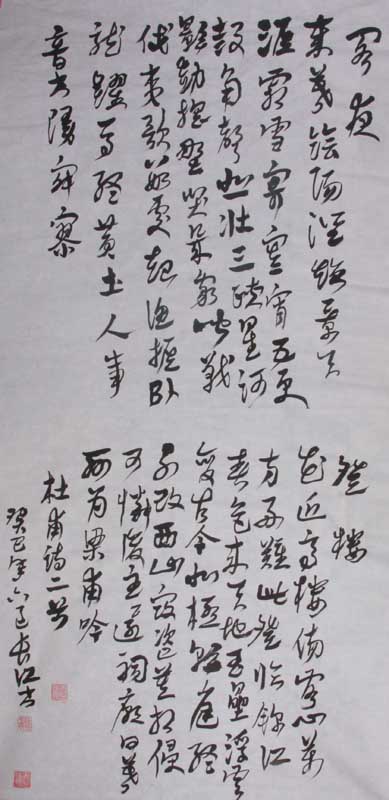 阁夜
岁暮阴阳催短景天
涯霜雪霁寒宵五更
鼓角声悲壮三峡星河
影動摇野哭幾家闻战
伐夷歌数处起渔樵卧
龙躍马终黄土人事
音书漫寂寥
登楼
花近高楼伤客心万
方多难此登临锦江
春色来天地玉垒浮云
變古今北极朝庭终
不改西山寇盗莫相侵
可憐後主还祠廟日暮
聊为梁甫吟
杜甫诗二首
癸巳年六月长江书